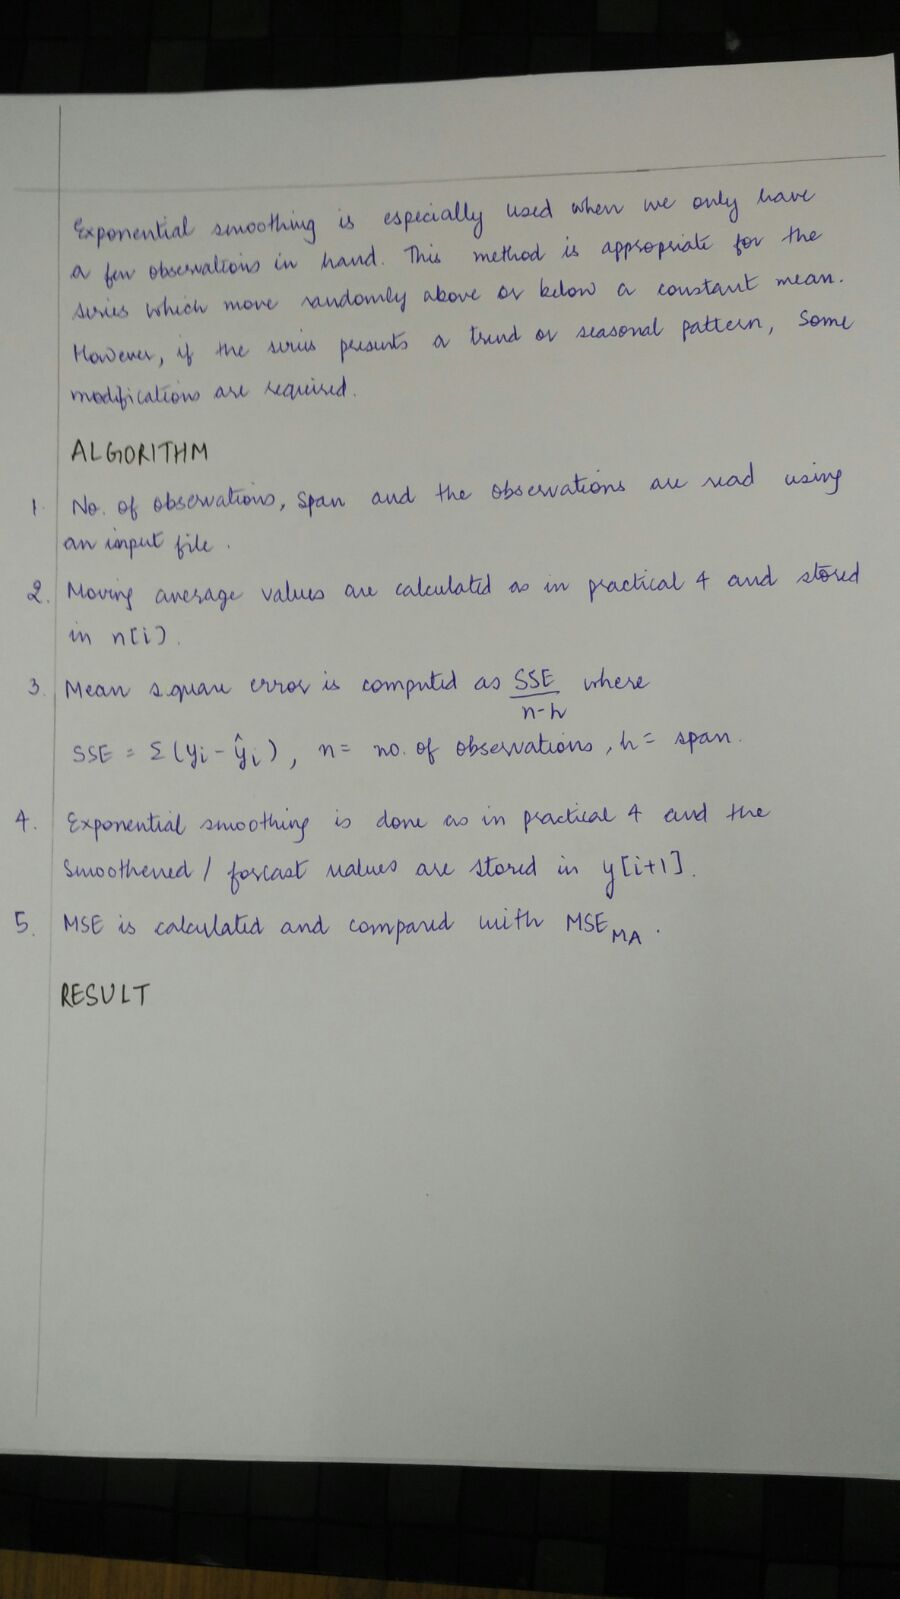 Exponential smoothing is especially used when we only have
a few observations in hand. This method is appropriate for the
series which move randomly above or below a constant mean.
However, if the series presents a trend or seasonal pattern, Some
modifications are required.
ALGORITHM
1. No. of observations, span and the observations are read using
an input file.
2. Moving average values are calculated as in practical 4 and stored
in n[i].
3. Mean square error is computed as SSE/n-h where
SSE = Σ(yi - ŷi), n = no. of observations, h = span.
4. Exponential smoothing is done as in practical 4 and the
Smoothened / forcast values are stored in y[i+1].
5. MSE is calculated and compared with MSE MA.
RESULT